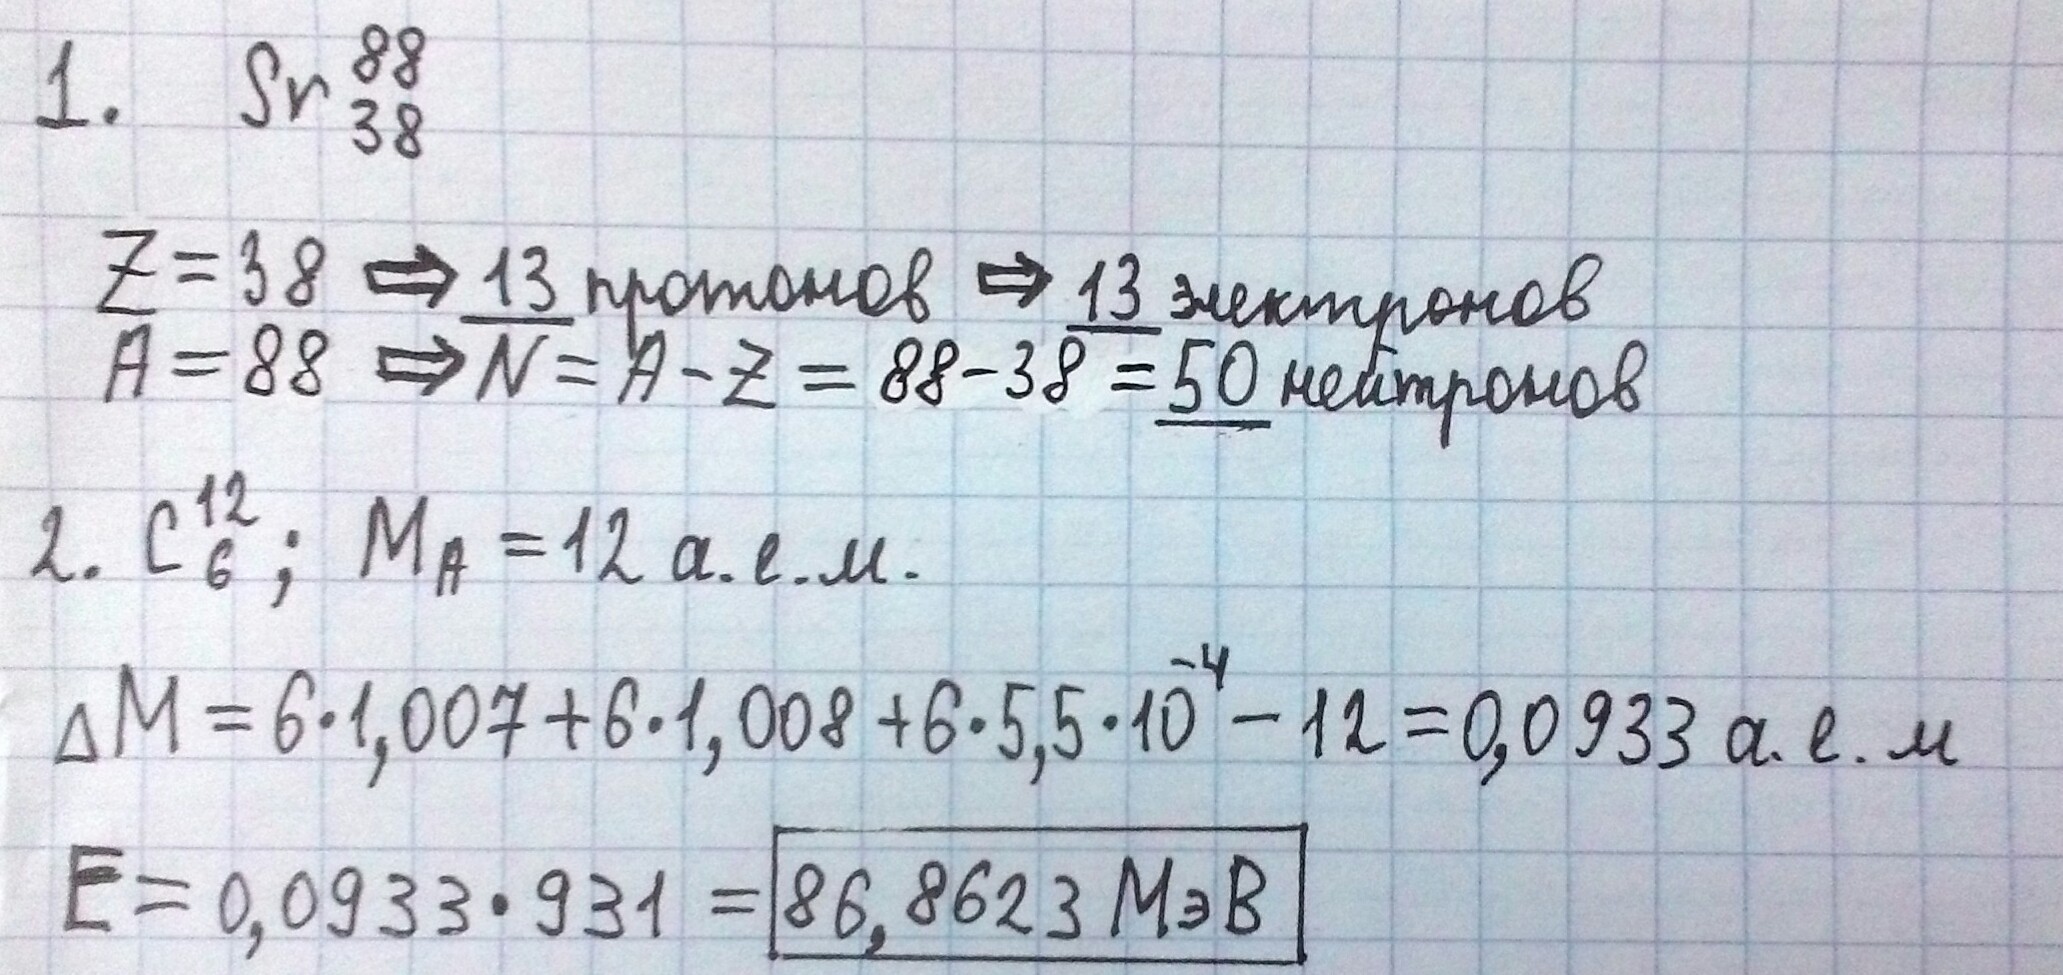 1. Sr 88 38
Z = 38 ⇒ 13 протонов ⇒ 13 электронов
A = 88 ⇒ N = A - Z = 88 - 38 = 50 нейтронов
2. C¹²₆; M_A = 12 а.е.м.
ΔM = 6·1,007 + 6·1,008 + 6·5,5·10⁻⁴ - 12 = 0,0933 а.е.м
E = 0,0933·931 = 86,8623 МэВ